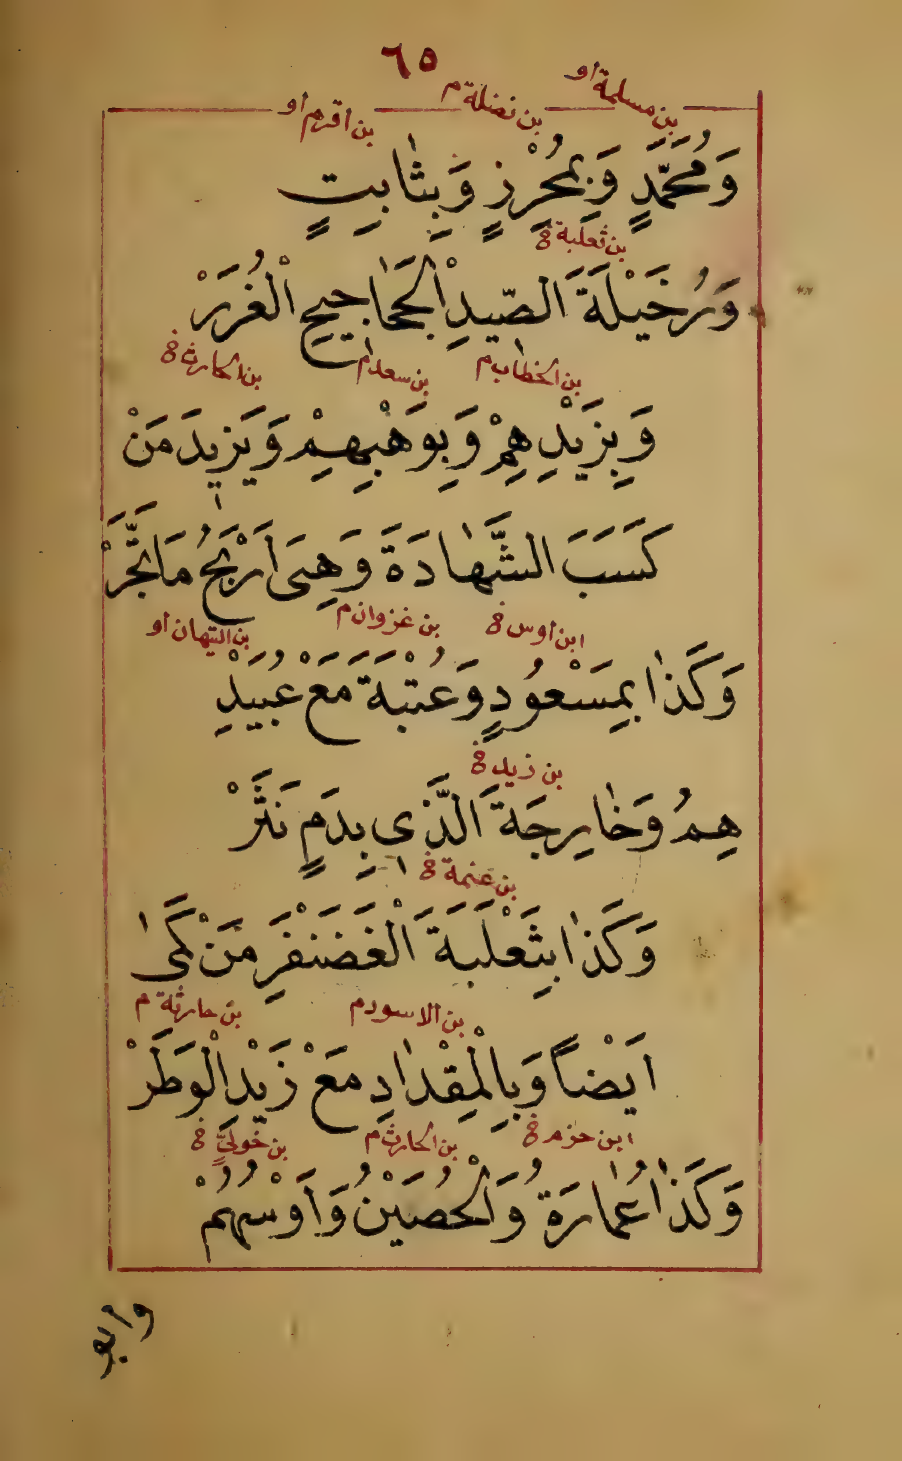 ٦٥
بن مسلمة او بن نضلة م بن اقرم او
وَمُحَمَّدٍ وَبِمُحْرِزٍ وَبِثَابِتٍ
بن ثعلبة خ
وَرُخَيْلَةَ الصِّيدِ الْجَحَاجِيحِ الْغُرَرْ
بن الخطاب م بن سعد م بن الحارث خ
وَبِزَيْدِهِمْ وَبِوَهْبِهِمْ وَيَزِيدَ مَنْ
كَسَبَ الشَّهَادَةَ وَهِىَ اَرْبَحُ مَا تَّجَرْ
ابن اوس خ بن غزوان م بن التيهان او
وَكَذَا بِمَسْعُودٍ وَعُتْبَةَ مَعْ عُبَيْدِ
بن زيد خ
هِمُ وَخَارِجَةَ الَّذِى بِدَمٍ نَثَرْ
بن عنمة خ
وَكَذَا بِثَعْلَبَةَ الْغَضَنْفَرِ مَنْ كَمَىٰ
بن الاسود م بن حارثة م
اَيْضاً وَبِالْمِقْدَادِ مَعْ زَيْدِ الْوَطَرْ
ابن حزم خ بن الحارث م بن خولىّ خ
وَكَذَا عُمَارَةُ وَالْحُصَيْنُ وَاَوْسُهُمْ
وابو